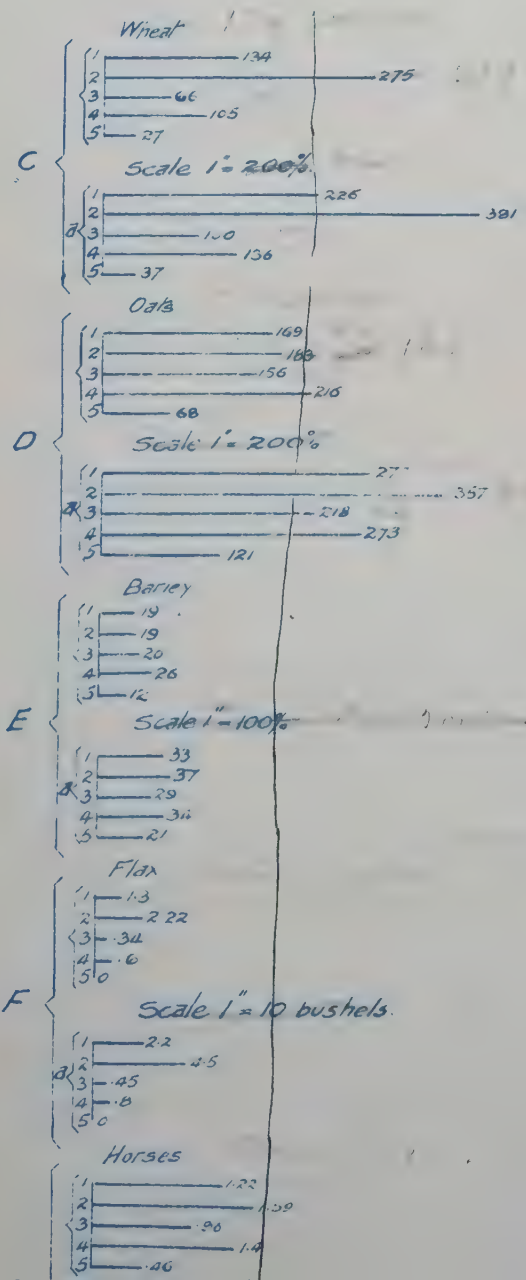 Wheat
1 134
2 275
3 66
4 105
5 27
C
Scale 1" = 200%
1 226
2 381
a 3
4 136
5 37
Oats
1 169
2 183
3 156
4 216
5 68
D
Scale 1" = 200%
1
2 357
a 3 218
4 273
5 121
Barley
1 19
2 19
3 20
4 26
5 12
E
Scale 1" = 100%
1 33
2 37
a 3 29
4
5 21
Flax
1 1.3
2 2.22
3 .34
4 .6
5 0
F
Scale 1" = 10 bushels.
1 2.2
2 4.5
a 3 .45
4 .8
5 0
Horses
1 1.22
2
3 .96
4 1.4
5 .46